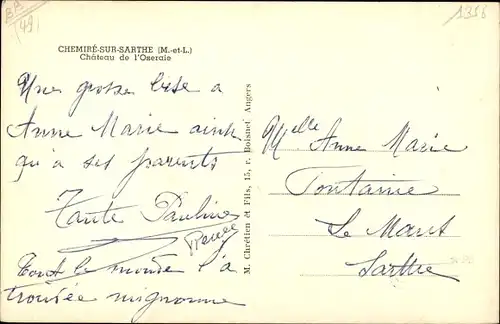 BP
(49)
1356
CHEMIRÉ-SUR-SARTHE (M.-et-L.)
Château de l'Oseraie
Une grosse bise a
Anne Marie ainsi
qu'a ses parents
Tante Pauline
Renée
Tout le monde l'a
trouvée mignonne
M. Chrétien et Fils, 15, r. Boisnet Angers
Melle Anne Marie
Fontaine
Le Mans
Sarthe